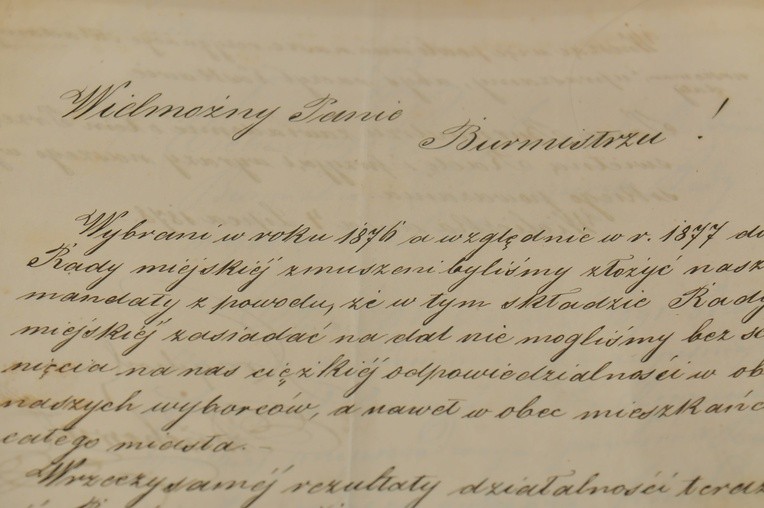 Wielmożny Panie
Burmistrzu !
Wybrani w roku 1876 a względnie w r. 1877 do
Rady miejskiéj zmuszeni byliśmy złożyć nasz
mandaty z powodu, że w tym składzie Rady
miejskiéj zasiadać na dal nie mogliśmy bez
nięcia na nas ciężkiéj odpowiedzialności w ob
naszych wyborców, a nawet w obec mieszkańc
całego miasta.
Wrzeczysaméj rezultaty działalności teraz